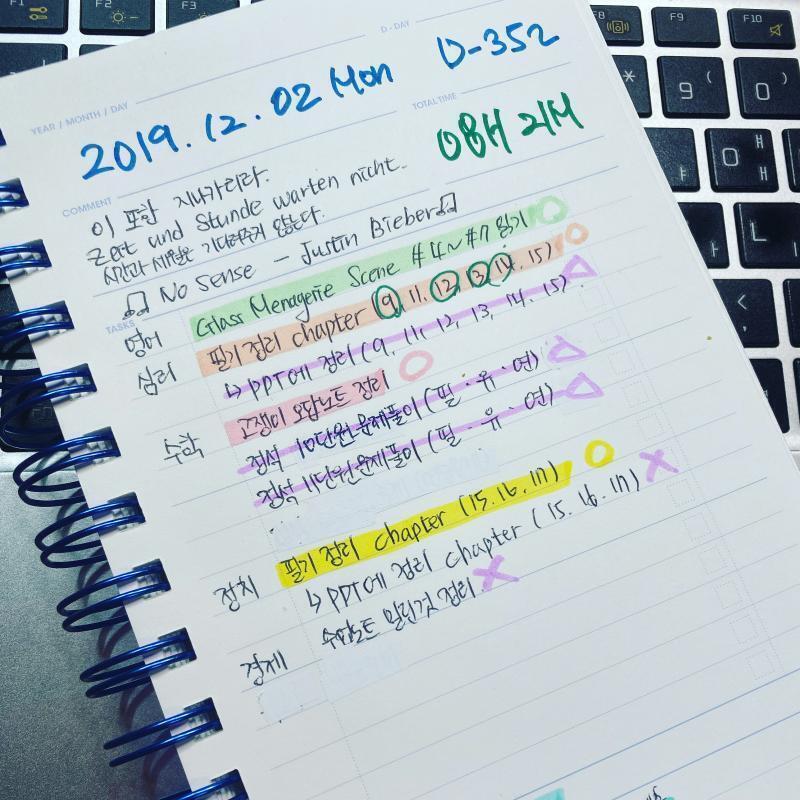 F1
F2
F8
F9
F10
D - DAY
YEAR / MONTH / DAY
2019. 12. 02 Mon
D-352
TOTAL TIME
08H 21M
COMMENT
이 또한 지나가리라.
Zeit und Stunde warten nicht.
시간과 세월은 기다려주지 않는다.
No Sense - Justin Bieber
TASKS
영어 Glass Menagerie Scene #4~#7 읽기
심리 필기 정리 chapter (9, 11. 12, 13, 14. 15)
↳ PPT에 정리 (9, 11, 12, 13, 14. 15)
수학 고쟁이 오답노트 정리
정석 10단원 문제풀이 (필·유·연)
정석 11단원 문제풀이 (필·유·연)
정치 필기 정리 chapter (15. 16. 17)
↳ PPT에 정리 chapter (15. 16. 17)
경제 수업노트 밀린것 정리